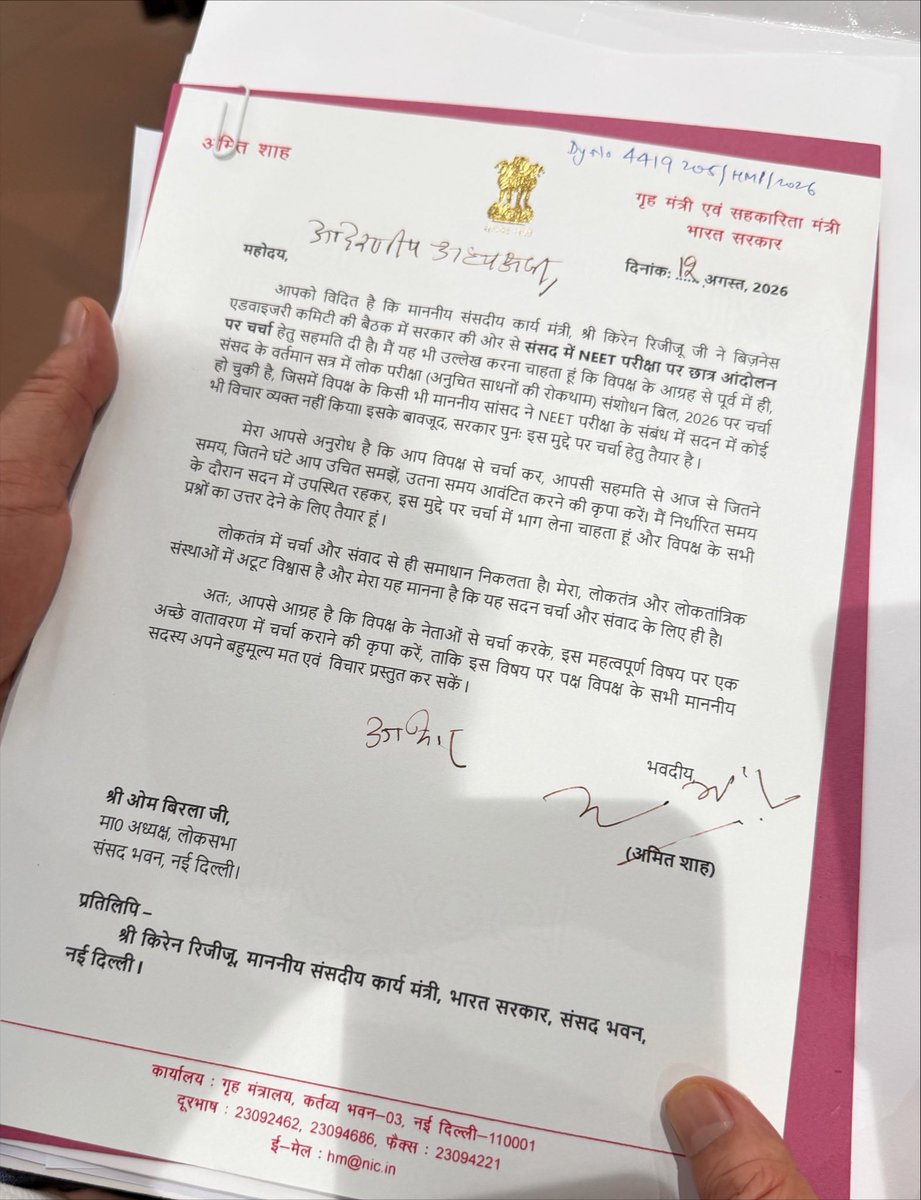 अमित शाह
Dy No 4419205/HMP/2026
गृह मंत्री एवं सहकारिता मंत्री
भारत सरकार
आदरणीय अध्यक्षजी,
महोदय,
दिनांक: 12 अगस्त, 2026
आपको विदित है कि माननीय संसदीय कार्य मंत्री, श्री किरेन रिजीजू जी ने बिज़नेस
एडवाइजरी कमिटी की बैठक में सरकार की ओर से संसद में NEET परीक्षा पर छात्र आंदोलन
पर चर्चा हेतु सहमति दी है। मैं यह भी उल्लेख करना चाहता हूं कि विपक्ष के आग्रह से पूर्व में ही,
संसद के वर्तमान सत्र में लोक परीक्षा (अनुचित साधनों की रोकथाम) संशोधन बिल, 2026 पर चर्चा
हो चुकी है, जिसमें विपक्ष के किसी भी माननीय सांसद ने NEET परीक्षा के संबंध में सदन में कोई
भी विचार व्यक्त नहीं किया। इसके बावजूद, सरकार पुनः इस मुद्दे पर चर्चा हेतु तैयार है।
मेरा आपसे अनुरोध है कि आप विपक्ष से चर्चा कर, आपसी सहमति से आज से जितने
समय, जितने घंटे आप उचित समझें, उतना समय आवंटित करने की कृपा करें। मैं निर्धारित समय
के दौरान सदन में उपस्थित रहकर, इस मुद्दे पर चर्चा में भाग लेना चाहता हूं और विपक्ष के सभी
प्रश्नों का उत्तर देने के लिए तैयार हूं।
लोकतंत्र में चर्चा और संवाद से ही समाधान निकलता है। मेरा, लोकतंत्र और लोकतांत्रिक
संस्थाओं में अटूट विश्वास है और मेरा यह मानना है कि यह सदन चर्चा और संवाद के लिए ही है।
अतः, आपसे आग्रह है कि विपक्ष के नेताओं से चर्चा करके, इस महत्वपूर्ण विषय पर एक
अच्छे वातावरण में चर्चा कराने की कृपा करें, ताकि इस विषय पर पक्ष विपक्ष के सभी माननीय
सदस्य अपने बहुमूल्य मत एवं विचार प्रस्तुत कर सकें।
भवदीय,
(अमित शाह)
श्री ओम बिरला जी,
मा0 अध्यक्ष, लोकसभा
संसद भवन, नई दिल्ली।
प्रतिलिपि –
श्री किरेन रिजीजू, माननीय संसदीय कार्य मंत्री, भारत सरकार, संसद भवन,
नई दिल्ली।
कार्यालय : गृह मंत्रालय, कर्तव्य भवन–03, नई दिल्ली–110001
दूरभाष : 23092462, 23094686, फैक्स : 23094221
ई–मेल : hm@nic.in